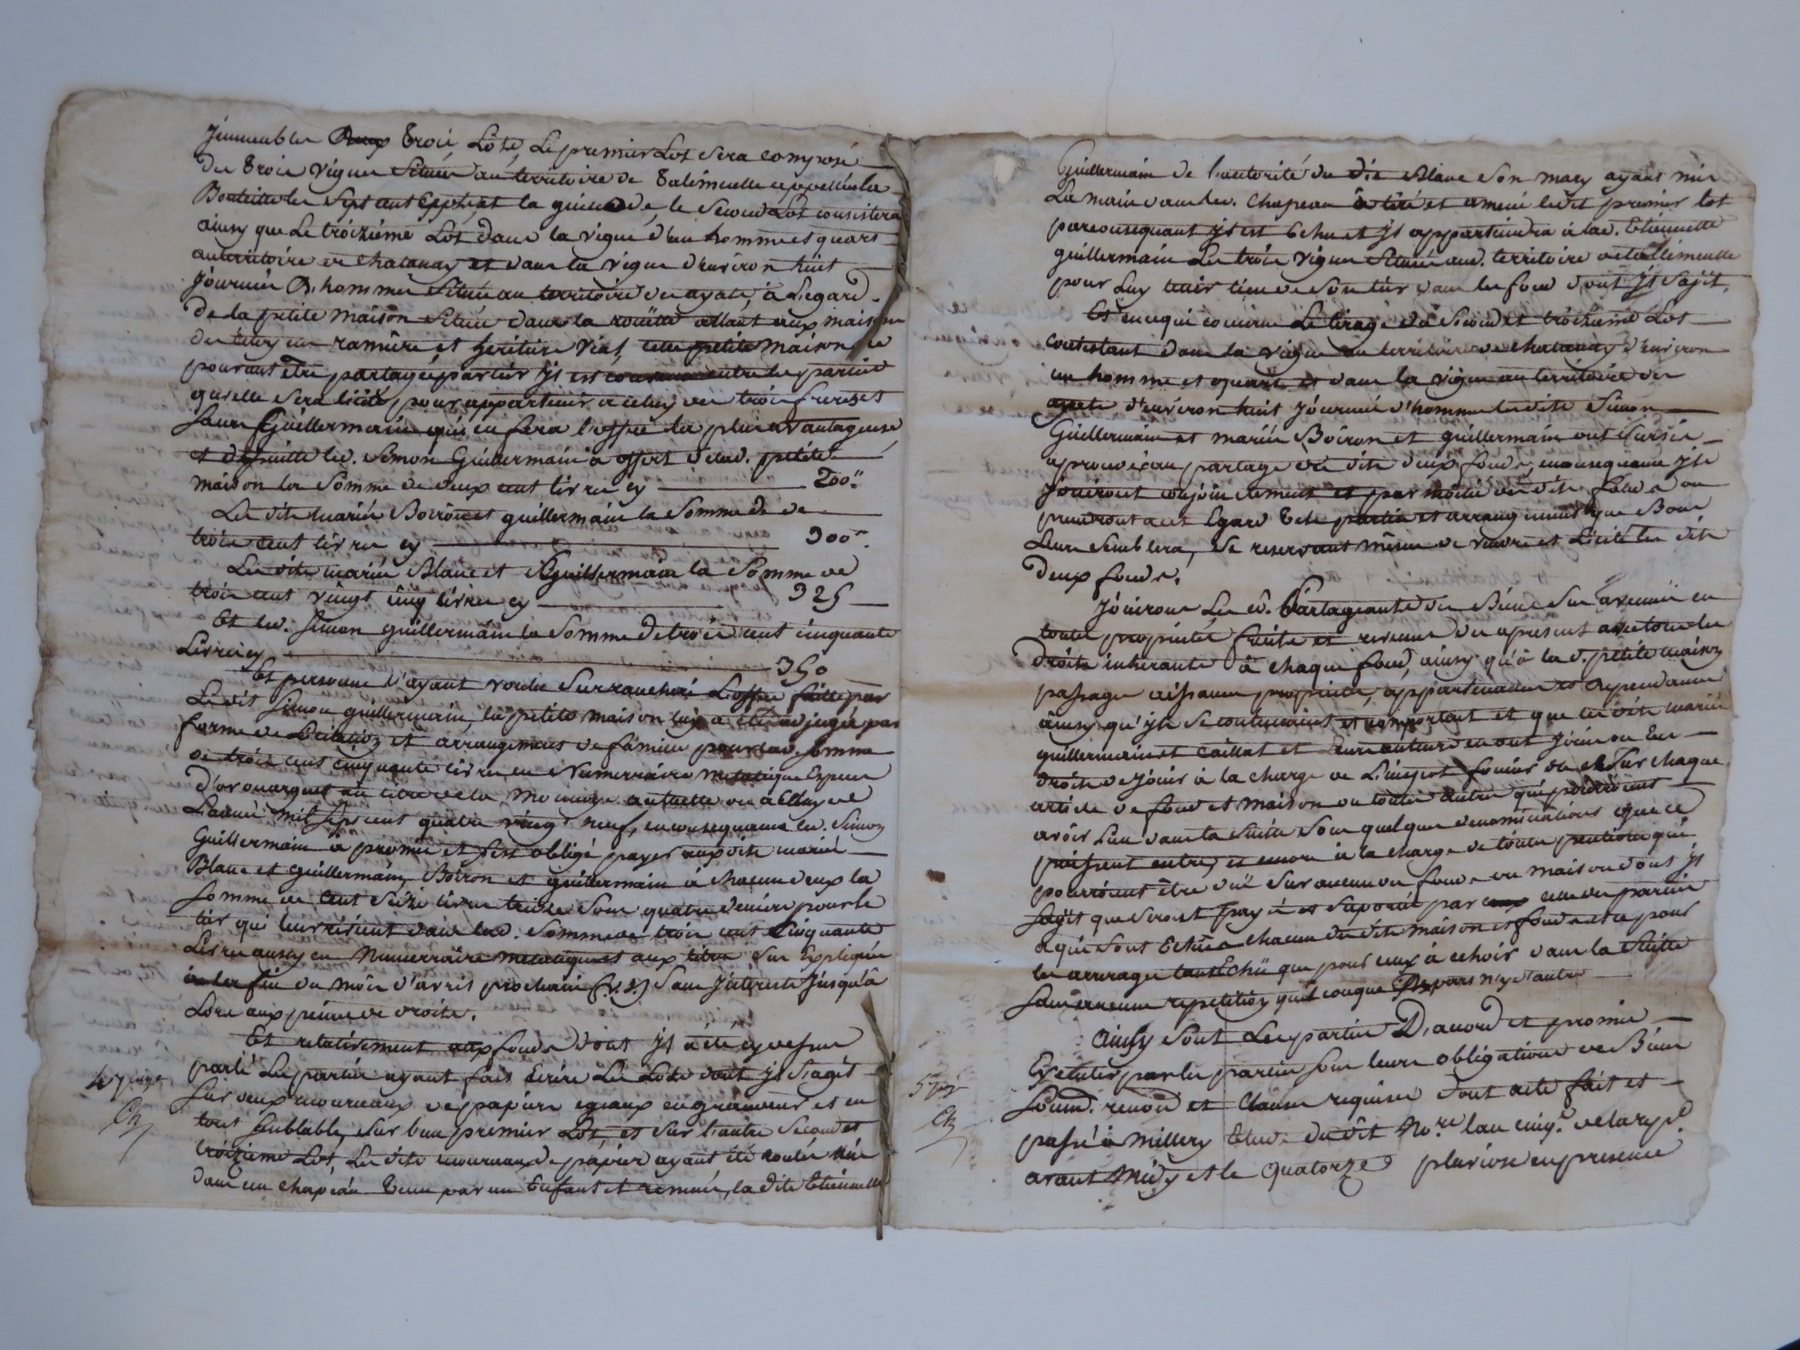 jmmeubles Deux trois Lots Le premier Lot sera composé
des trois vignes située au territoire de talémuelle appellés la
Bouteille les sept ans la seconde, le second Lot consistera
ainsy que Le troizième Lot dans la vigne d'un homme et quart
au territoire de chatanay et dans la vigne d'environ huit
journée D'hommes située au territoire des ayats, à L'egard
de la petite maison située dans la rouette allant aux maisons
des citoyens ramière et héritiers Vial, cette petite maison ne
pouvant être partagée par tiers jls est convenu entre les parties
qu'elle sera licité pour appartenir à celuy des trois freres et
sœurs Guillermain qui en fera l'offre la plus avantageuse
et de suitte led. Simon Guillermain à offert de lad. petite
maison la somme de deux cent livres cy 200"
Les dits mariés Boiron et guillermain la Somme de de
trois cent livres cy 300"
Les dits mariés Blanc et Guillermain la Somme de
trois cent vingt cinq livres cy 325
Et led. Simon guillermain la Somme de trois cent cinquante
Livres cy 350
Et personne n'ayant voulu surranchéri L'offre faitte par
Le dit Simon guillermain, la petite maison luy a été adjugée par
forme de Licitation et arrangement de famille pour lad. somme
de trois cent cinquante livres en Numeraire metalique Espece
d'or ou argent au titre de la monnoye actuelle ou à celluy de
L'année mil sept cent quatre vingt neuf, en consequence led. Simon
Guillermain à promis et s'est obligé payer auxdits mariés
Blanc et guillermain, Boiron et guillermain à chacun d'eux la
somme de cent seize livres treize sous quatre deniers pour le
tier qui leur revient dans lad. Somme de trois cent Cinquante
Livres aussy en Numeraire metalique et aux titre sus Expliqués
à la fin du mois d'avril prochain (v.s.) sans jnterets jusqu'à
Lors aux peines de droits.
Et relativement aux fonds dont jl à été cy dessus
parlé Les parties ayant fait Ecrire Les Lots dont jl s'agit
sur deux morceaux de papiers egaux en grandeur et en
tout semblable, sur l'un premier Lot, et sur l'autre second et
troizième Lot, Les dits morceaux de papier ayant été roulés mis
dans un chapeau tenu par un Enfant et remués, la dite Etiennette
4e page
Guillermain de l'autorité du dit Blanc son mary ayant mis
La main dans led. Chapeau à tiré et amené ledit premier lot
par consequant jl est Echu et jl appartiendra à lad. Etiennette
guillermain Les trois vignes située aud. territoire de talémuelle
pour Luy tenir lieu de son tier dans les fonds dont jl s'agit.
Et en ce qui concerne Le tirage du second et troizième Lot
consistant dans la vigne au territoire de chatanay d'environ
un homme et quart et dans la vigne au territoire des
ayats d'environ huit journée d'hommes lesdits Simon
Guillermain et mariés Boiron et guillermain ont sursis
à procedé au partage des dits deux fonds, en consequence jls
jouiront conjoinctement et par moitié des dits fonds ou
prendront à cet Egard tels parties et arrangements que Bon
Leurs semblera, se reservant même de vendre et licité les dits
deux fonds.
Jouiront Les d. Partageants des Biens sus avenus en
toute propriété fruits et revenus des apresent avec tous les
droits inherants à chaque fond, ainsy qu'à la d. petite maison
passage aisance propriété, appartenance et dependance
ainsy qu'jls se continuaient et comportant et que les dits mariés
guillermain et Caillat et Leurs auteurs en ont joui ou Eu
droits de jouir à la charge de L'impost foncier du et sur chaque
article de fond et maison ou toutes autre qui pourroient
avoir Lieu dans la suitte sous quelque denominations que ce
puissent entre, et encore à la charge de toutes pentions qui
pourroient être duë sur aucun des fonds ou maison dont jl
s'agit que seront payé et suporté par eux ceux des parties
à qui sont Echue chacun des dits maison et fonds et ce pour
les arrerages tant Echû que pour ceux à échoir dans la suitte
sans aucune repetition quelconque
Ainsy sont Les parties D'acord et promis
Executer par les parties sous leurs obligations de Biens
Soumd. renond et Clause requise dont acte fait et
passé à millery Etude du dit No.re l'an cinq.e de la rep.e
avant Midy et le quatorze pluviose en presence
5 page